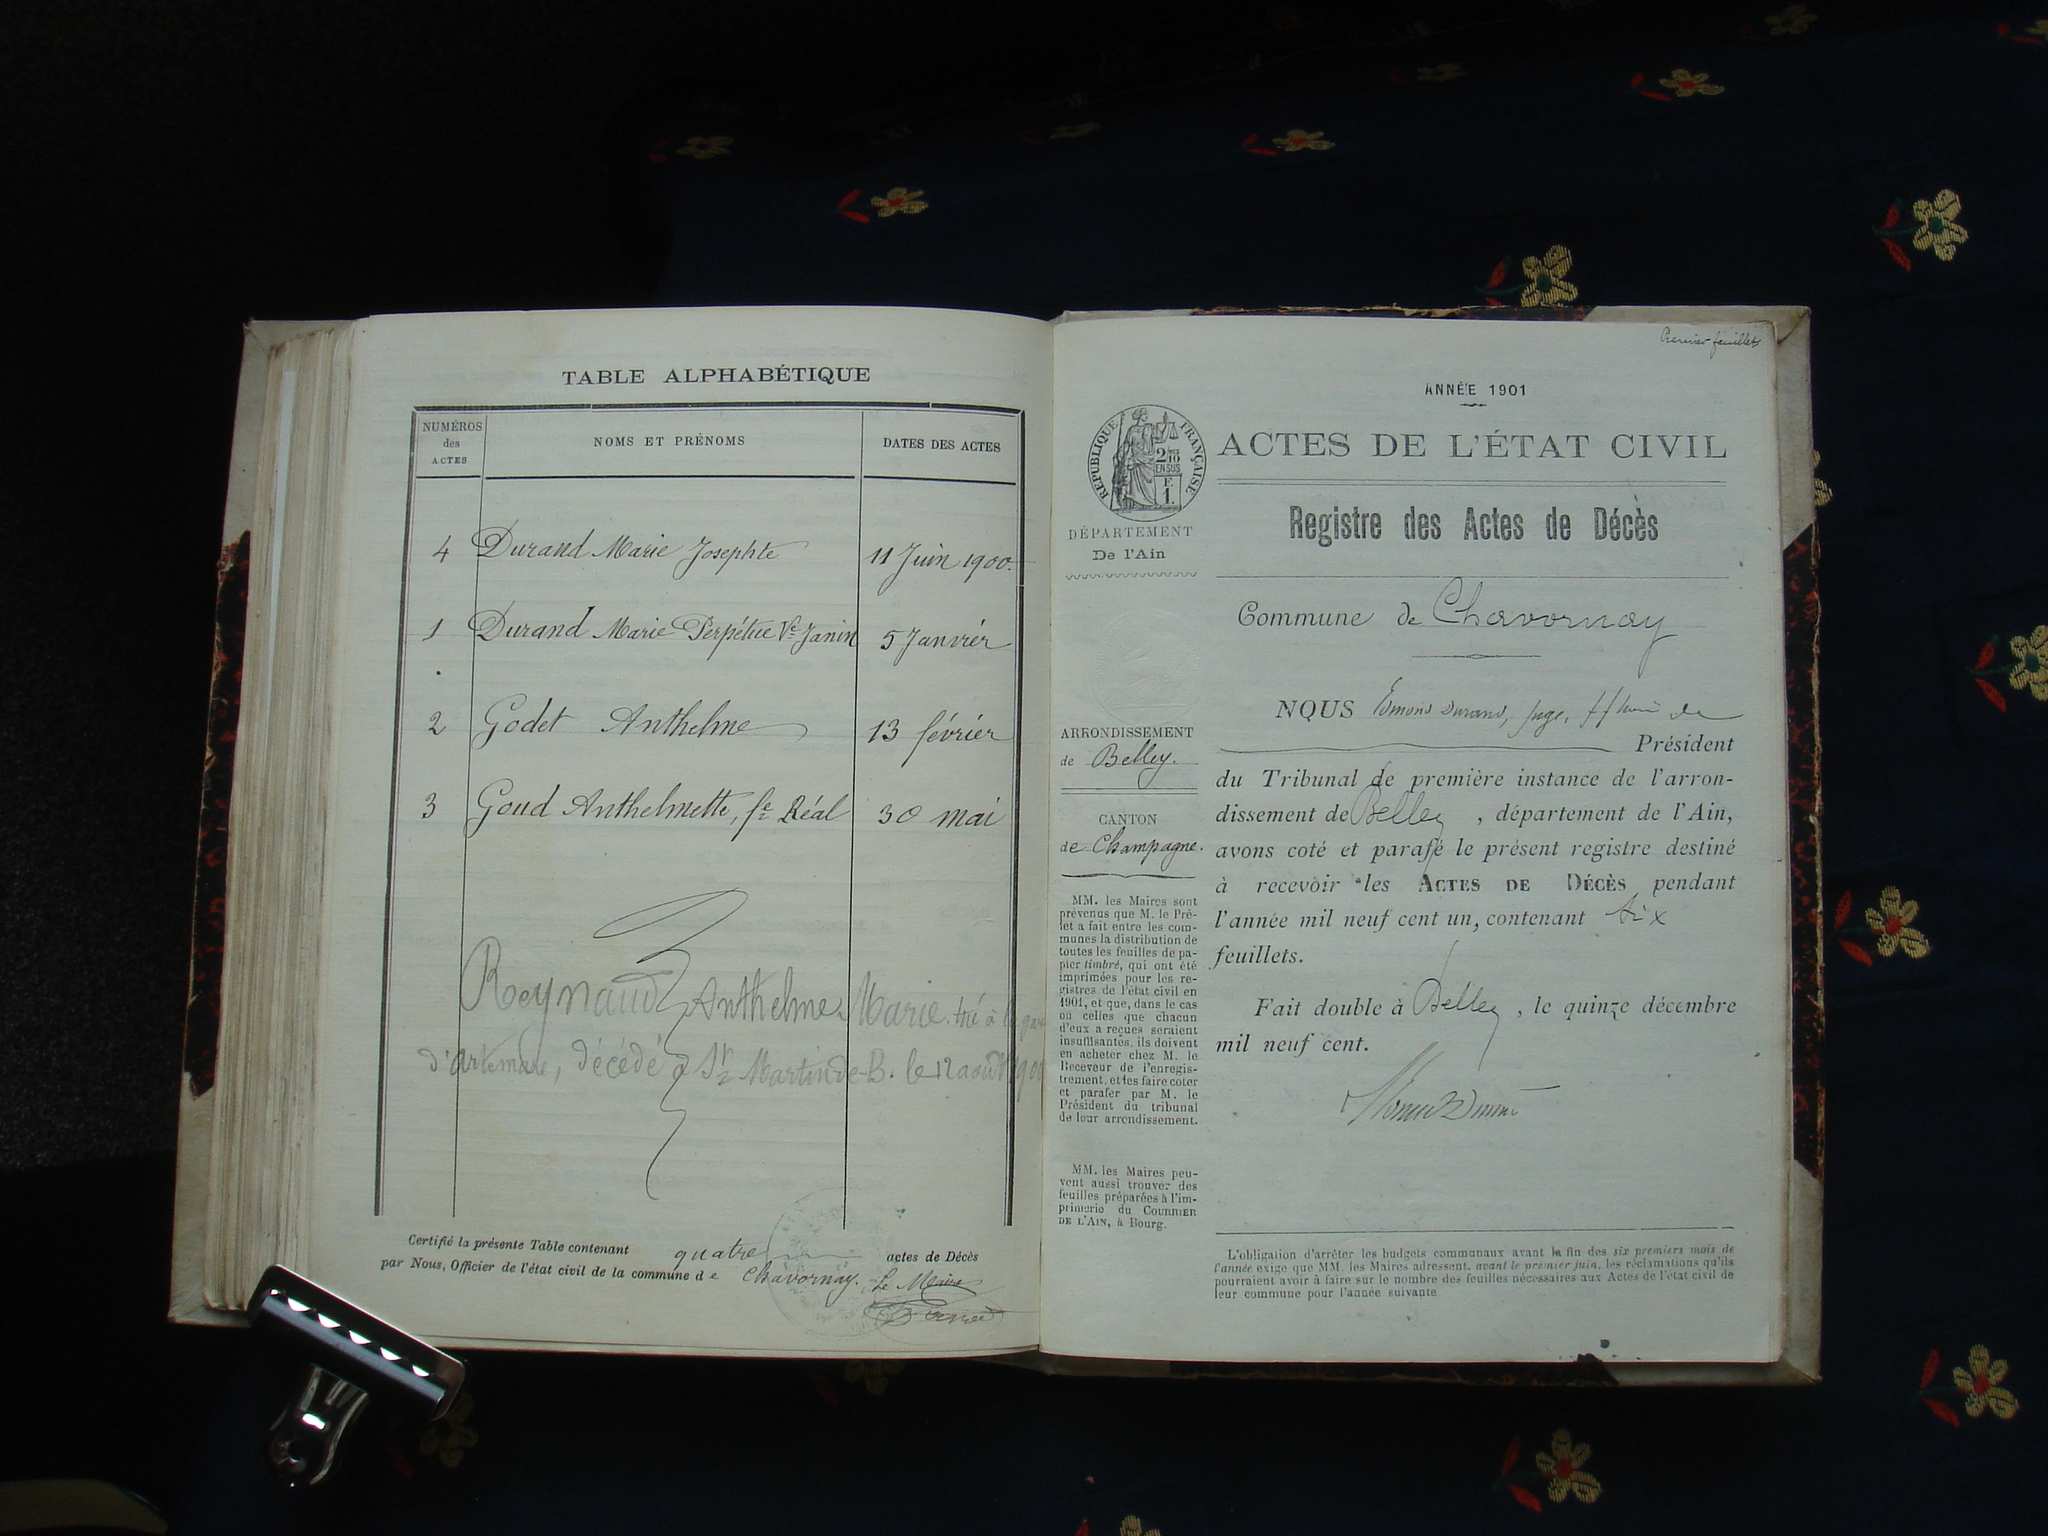 TABLE ALPHABÉTIQUE
NUMÉROS des ACTES
NOMS ET PRÉNOMS
DATES DES ACTES
4 Durand Marie Josephte 11 Juin 1900.
1 Durand Marie Perpétue Ve Janin 5 Janvier
2 Godet Anthelme 13 février
3 Goud Anthelmette, fe Réal 30 mai
Reynaud Anthelme Marie. tué à la gare
d'Artemare, décédé à St Martin de B. le 12 août 1900
Certifié la présente Table contenant quatre actes de Décès
par Nous, Officier de l'état civil de la commune de Chavornay. Le Maire
Premier feuillet
ANNÉE 1901
RÉPUBLIQUE FRANÇAISE
2/10 EN SUS
F 1.
ACTES DE L'ÉTAT CIVIL
DÉPARTEMENT
De l'Ain
Registre des Actes de Décès
Commune de Chavornay
ARRONDISSEMENT
de Belley.
CANTON
de Champagne.
MM. les Maires sont
prévenus que M. le Pré-
fet a fait entre les com-
munes la distribution de
toutes les feuilles de pa-
pier timbré, qui ont été
imprimées pour les re-
gistres de l'état civil en
1901, et que, dans le cas
où celles que chacun
d'eux a reçues seraient
insuffisantes, ils doivent
en acheter chez M. le
Receveur de l'enregis-
trement, et les faire coter
et parafer par M. le
Président du tribunal
de leur arrondissement.
MM. les Maires peu-
vent aussi trouver des
feuilles préparées à l'im-
primerie du COURRIER
DE L'AIN, à Bourg.
NOUS Edmond Durand, juge, de
Président
du Tribunal de première instance de l'arron-
dissement de Belley, département de l'Ain,
avons coté et parafé le présent registre destiné
à recevoir les ACTES DE DÉCÈS pendant
l'année mil neuf cent un, contenant six
feuillets.
Fait double à Belley, le quinze décembre
mil neuf cent.
L'obligation d'arrêter les budgets communaux avant la fin des six premiers mois de
l'année exige que MM. les Maires adressent, avant le premier juin, les réclamations qu'ils
pourraient avoir à faire sur le nombre des feuilles nécessaires aux Actes de l'état civil de
leur commune pour l'année suivante